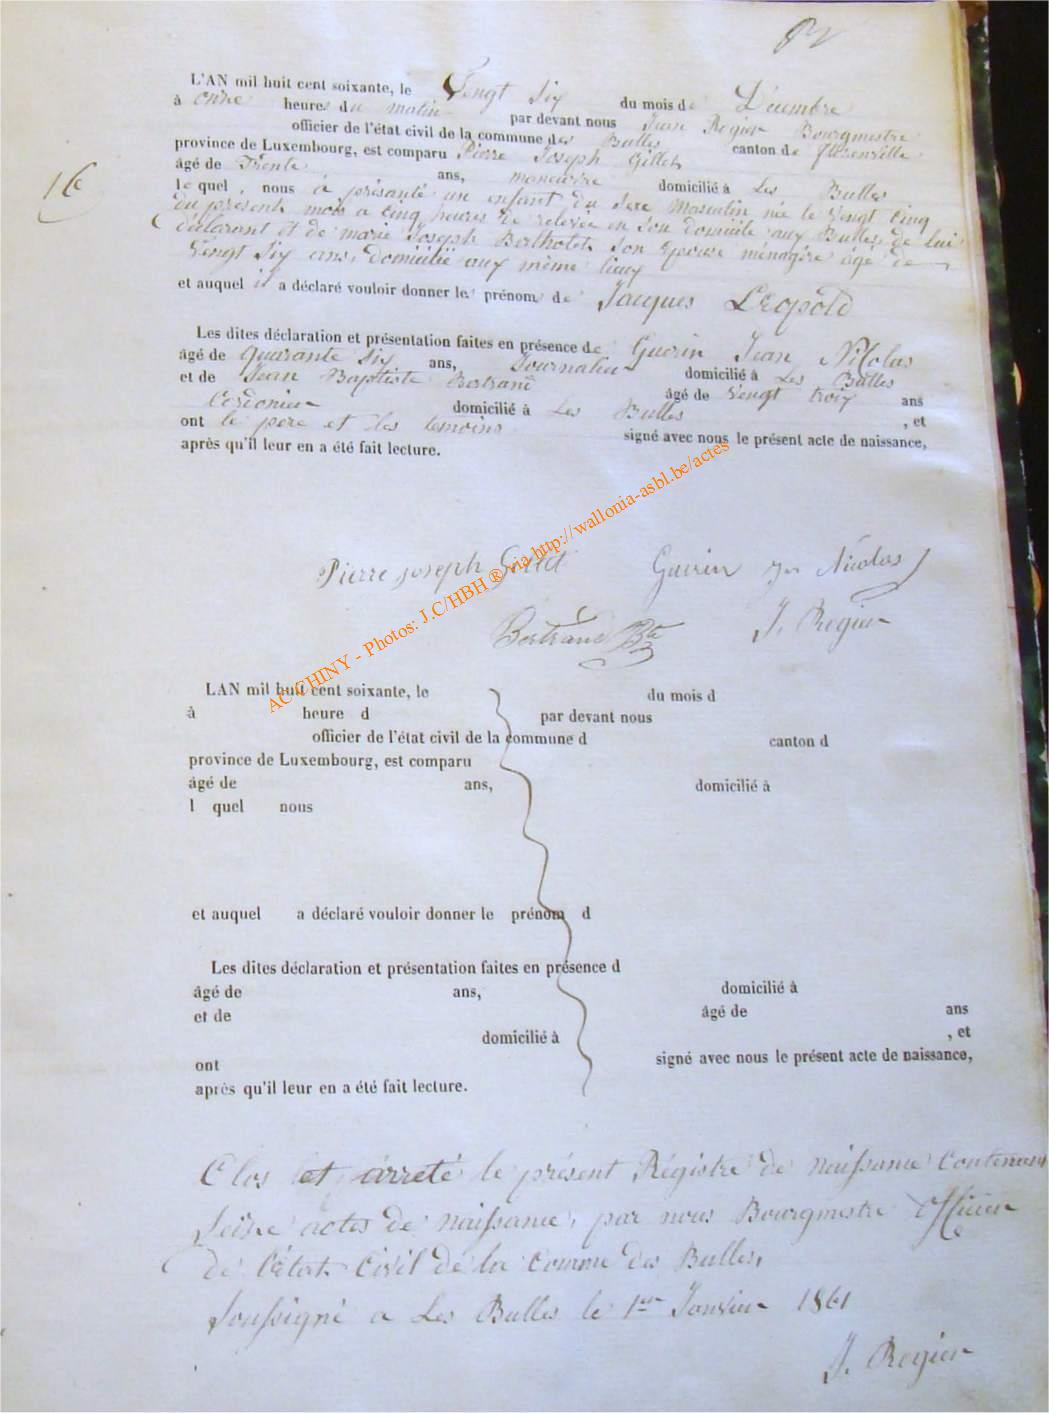 L'AN mil huit cent soixante, le Vingt Six du mois de Décembre
à onze heures du matin par devant nous Jean Regier Bourgmestre
officier de l'état civil de la commune des Bulles canton de florenville
province de Luxembourg, est comparu Pierre Joseph Gillet
âgé de Trente ans, manœuvre domicilié à Les Bulles
16
lequel, nous à présanté un enfant du Sexe Masculin née le Vingt Cinq
du present mois a Cinq heures de relevée en Son domicile aux Bulles, de lui
déclarant et de marie Joseph Bertholet Son Epouse ménagère âgé de
Vingt Six ans, domicilié aux même lieux
et auquel il a déclaré vouloir donner les prénoms de Jacques Léopold
Les dites déclaration et présentation faites en présence de Guerin Jean Nicolas
âgé de quarante Six ans, Journalier domicilié à Les Bulles
et de Jean Baptiste Bertrand âgé de Vingt troix ans
Cordonier domicilié à Les Bulles , et
ont le père et les temoins signé avec nous le présent acte de naissance,
après qu'il leur en a été fait lecture.
Pierre joseph Gillet Guerin Jn Nicolas
Bertrand Bte J. Regier
AC CHINY - Photos: J.C/HBH ® via http://wallonia-asbl.be/actes
L'AN mil huit cent soixante, le du mois d
à heure d par devant nous
officier de l'état civil de la commune d canton d
province de Luxembourg, est comparu
âgé de ans, domicilié à
l quel nous
et auquel a déclaré vouloir donner le prénom d
Les dites déclaration et présentation faites en présence d
âgé de ans, domicilié à
et de âgé de ans
domicilié à , et
ont signé avec nous le présent acte de naissance,
après qu'il leur en a été fait lecture.
Clos et arreté le présent Régistre de naissance Contenant
Seize actes de naissance, par nous Bourgmestre Officier
de l'état Civil de la Comme des Bulles,
Soussigné a Les Bulles le 1er Janvier 1861
J. Regier